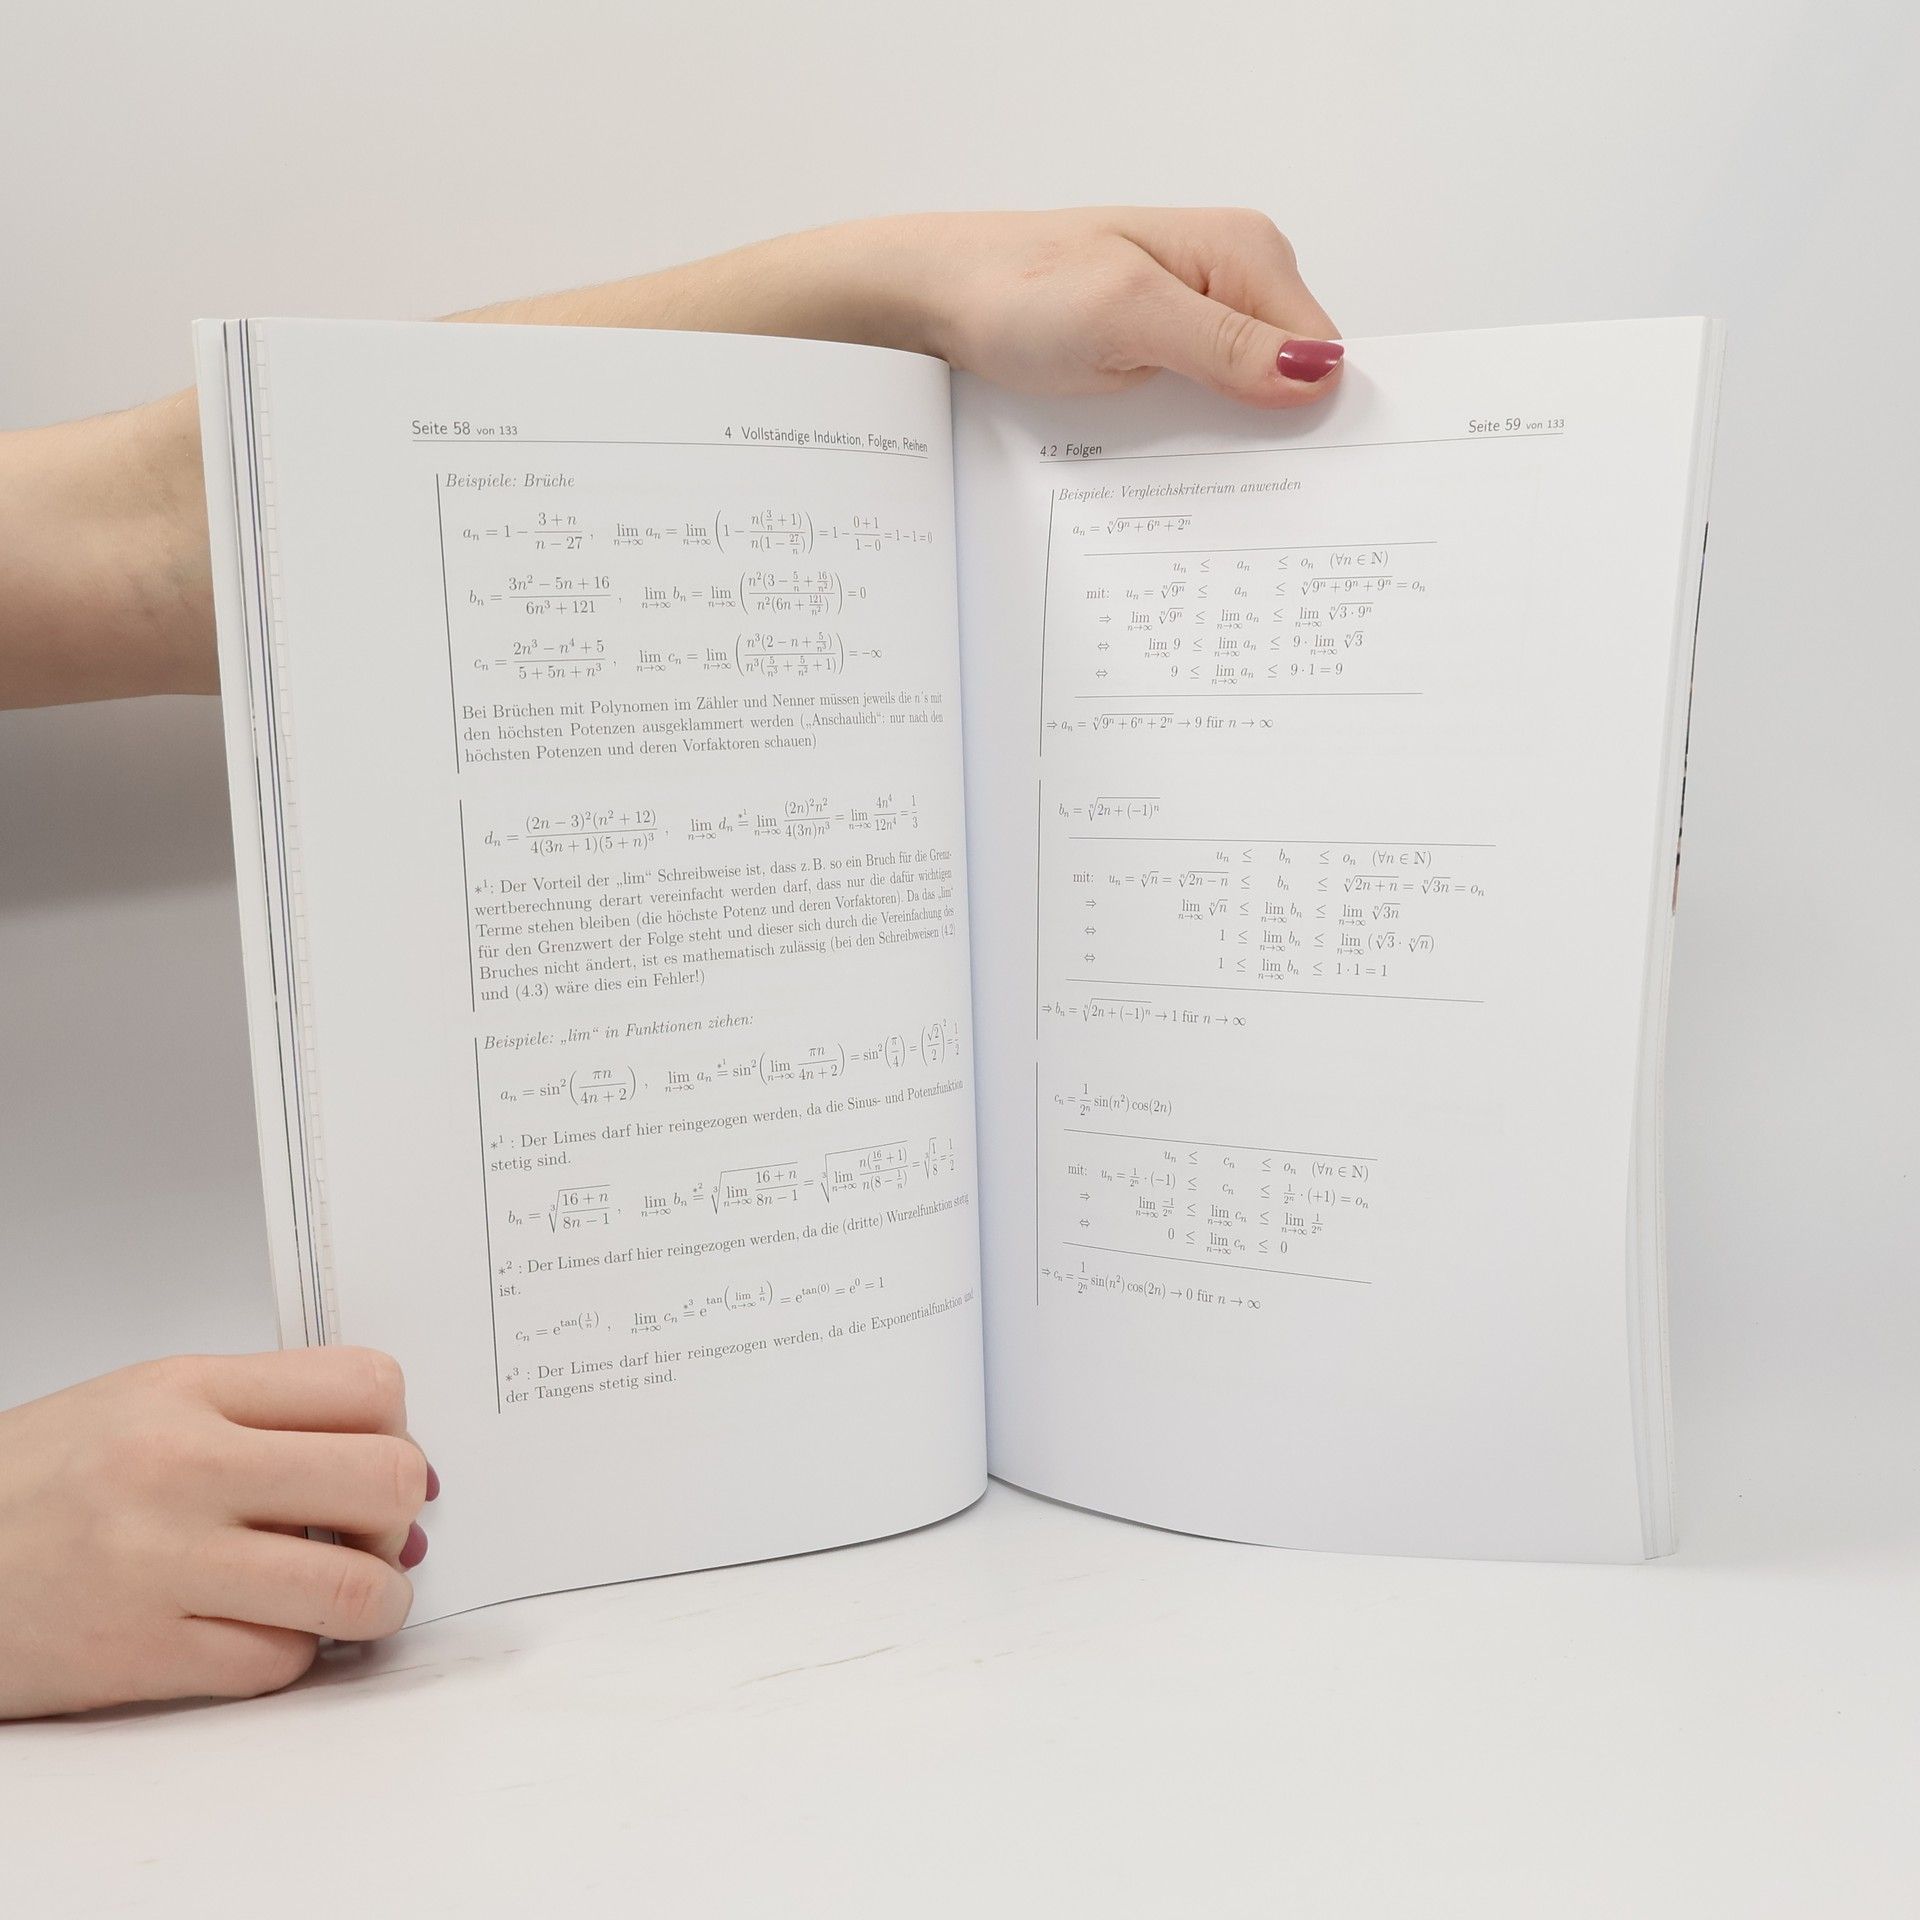 Seite 58 von 133
4 Vollständige Induktion, Folgen, Reihen
Beispiele: Brüche
aₙ = 1 − (3 + n)/(n − 27) , lim_{n→∞} aₙ = lim_{n→∞} (1 − n(3/n + 1)/n(1 − 27/n)) = 1 − (0+1)/(1−0) = 1 − 1 = 0
bₙ = (3n² − 5n + 16)/(6n³ + 121) , lim_{n→∞} bₙ = lim_{n→∞} (n²(3 − 5/n + 16/n²)/n²(6n + 121/n²)) = 0
cₙ = (2n³ − n⁴ + 5)/(5 + 5n + n³) , lim_{n→∞} cₙ = lim_{n→∞} (n³(2 − n + 5/n³)/n³(5/n³ + 5/n² + 1)) = −∞
Bei Brüchen mit Polynomen im Zähler und Nenner müssen jeweils die n´s mit
den höchsten Potenzen ausgeklammert werden („Anschaulich“: nur nach den
höchsten Potenzen und deren Vorfaktoren schauen)
dₙ = (2n − 3)²(n² + 12)/4(3n + 1)(5 + n)³ , lim_{n→∞} dₙ =^{*1} lim_{n→∞} (2n)²n²/4(3n)n³ = lim_{n→∞} 4n⁴/12n⁴ = 1/3
*¹: Der Vorteil der „lim“ Schreibweise ist, dass z. B. so ein Bruch für die Grenz-
wertberechnung derart vereinfacht werden darf, dass nur die dafür wichtigen
Terme stehen bleiben (die höchste Potenz und deren Vorfaktoren). Da das „lim“
für den Grenzwert der Folge steht und dieser sich durch die Vereinfachung des
Bruches nicht ändert, ist es mathematisch zulässig (bei den Schreibweisen (4.2)
und (4.3) wäre dies ein Fehler!)
Beispiele: „lim“ in Funktionen ziehen:
aₙ = sin²(πn/(4n + 2)) , lim_{n→∞} aₙ =^{*1} sin²(lim_{n→∞} πn/(4n + 2)) = sin²(π/4) = (√2/2)² = 1/2
*¹ : Der Limes darf hier reingezogen werden, da die Sinus- und Potenzfunktion
stetig sind.
bₙ = ∛((16 + n)/(8n − 1)) , lim_{n→∞} bₙ =^{*2} ∛(lim_{n→∞} (16 + n)/(8n − 1)) = ∛(lim_{n→∞} n(16/n + 1)/n(8 − 1/n)) = ∛(1/8) = 1/2
*² : Der Limes darf hier reingezogen werden, da die (dritte) Wurzelfunktion stetig
ist.
cₙ = e^{tan(1/n)} , lim_{n→∞} cₙ =^{*3} e^{tan(lim_{n→∞} 1/n)} = e^{tan(0)} = e⁰ = 1
*³ : Der Limes darf hier reingezogen werden, da die Exponentialfunktion und
der Tangens stetig sind.
4.2 Folgen
Seite 59 von 133
Beispiele: Vergleichskriterium anwenden
aₙ = ⁿ√(9ⁿ + 6ⁿ + 2ⁿ)
uₙ ≤ aₙ ≤ oₙ (∀n ∈ ℕ)
mit: uₙ = ⁿ√(9ⁿ) ≤ aₙ ≤ ⁿ√(9ⁿ + 9ⁿ + 9ⁿ) = oₙ
⇒ lim_{n→∞} ⁿ√(9ⁿ) ≤ lim_{n→∞} aₙ ≤ lim_{n→∞} ⁿ√(3 · 9ⁿ)
⇔ lim_{n→∞} 9 ≤ lim_{n→∞} aₙ ≤ 9 · lim_{n→∞} ⁿ√3
⇔ 9 ≤ lim_{n→∞} aₙ ≤ 9 · 1 = 9
⇒ aₙ = ⁿ√(9ⁿ + 6ⁿ + 2ⁿ) → 9 für n → ∞
bₙ = ⁿ√(2n + (−1)ⁿ)
uₙ ≤ bₙ ≤ oₙ (∀n ∈ ℕ)
mit: uₙ = ⁿ√n = ⁿ√(2n − n) ≤ bₙ ≤ ⁿ√(2n + n) = ⁿ√(3n) = oₙ
⇒ lim_{n→∞} ⁿ√n ≤ lim_{n→∞} bₙ ≤ lim_{n→∞} ⁿ√(3n)
⇔ 1 ≤ lim_{n→∞} bₙ ≤ lim_{n→∞} (ⁿ√3 · ⁿ√n)
⇔ 1 ≤ lim_{n→∞} bₙ ≤ 1 · 1 = 1
⇒ bₙ = ⁿ√(2n + (−1)ⁿ) → 1 für n → ∞
cₙ = 1/2ⁿ sin(n²) cos(2n)
uₙ ≤ cₙ ≤ oₙ (∀n ∈ ℕ)
mit: uₙ = 1/2ⁿ · (−1) ≤ cₙ ≤ 1/2ⁿ · (+1) = oₙ
⇒ lim_{n→∞} −1/2ⁿ ≤ lim_{n→∞} cₙ ≤ lim_{n→∞} 1/2ⁿ
⇔ 0 ≤ lim_{n→∞} cₙ ≤ 0
⇒ cₙ = 1/2ⁿ sin(n²) cos(2n) → 0 für n → ∞